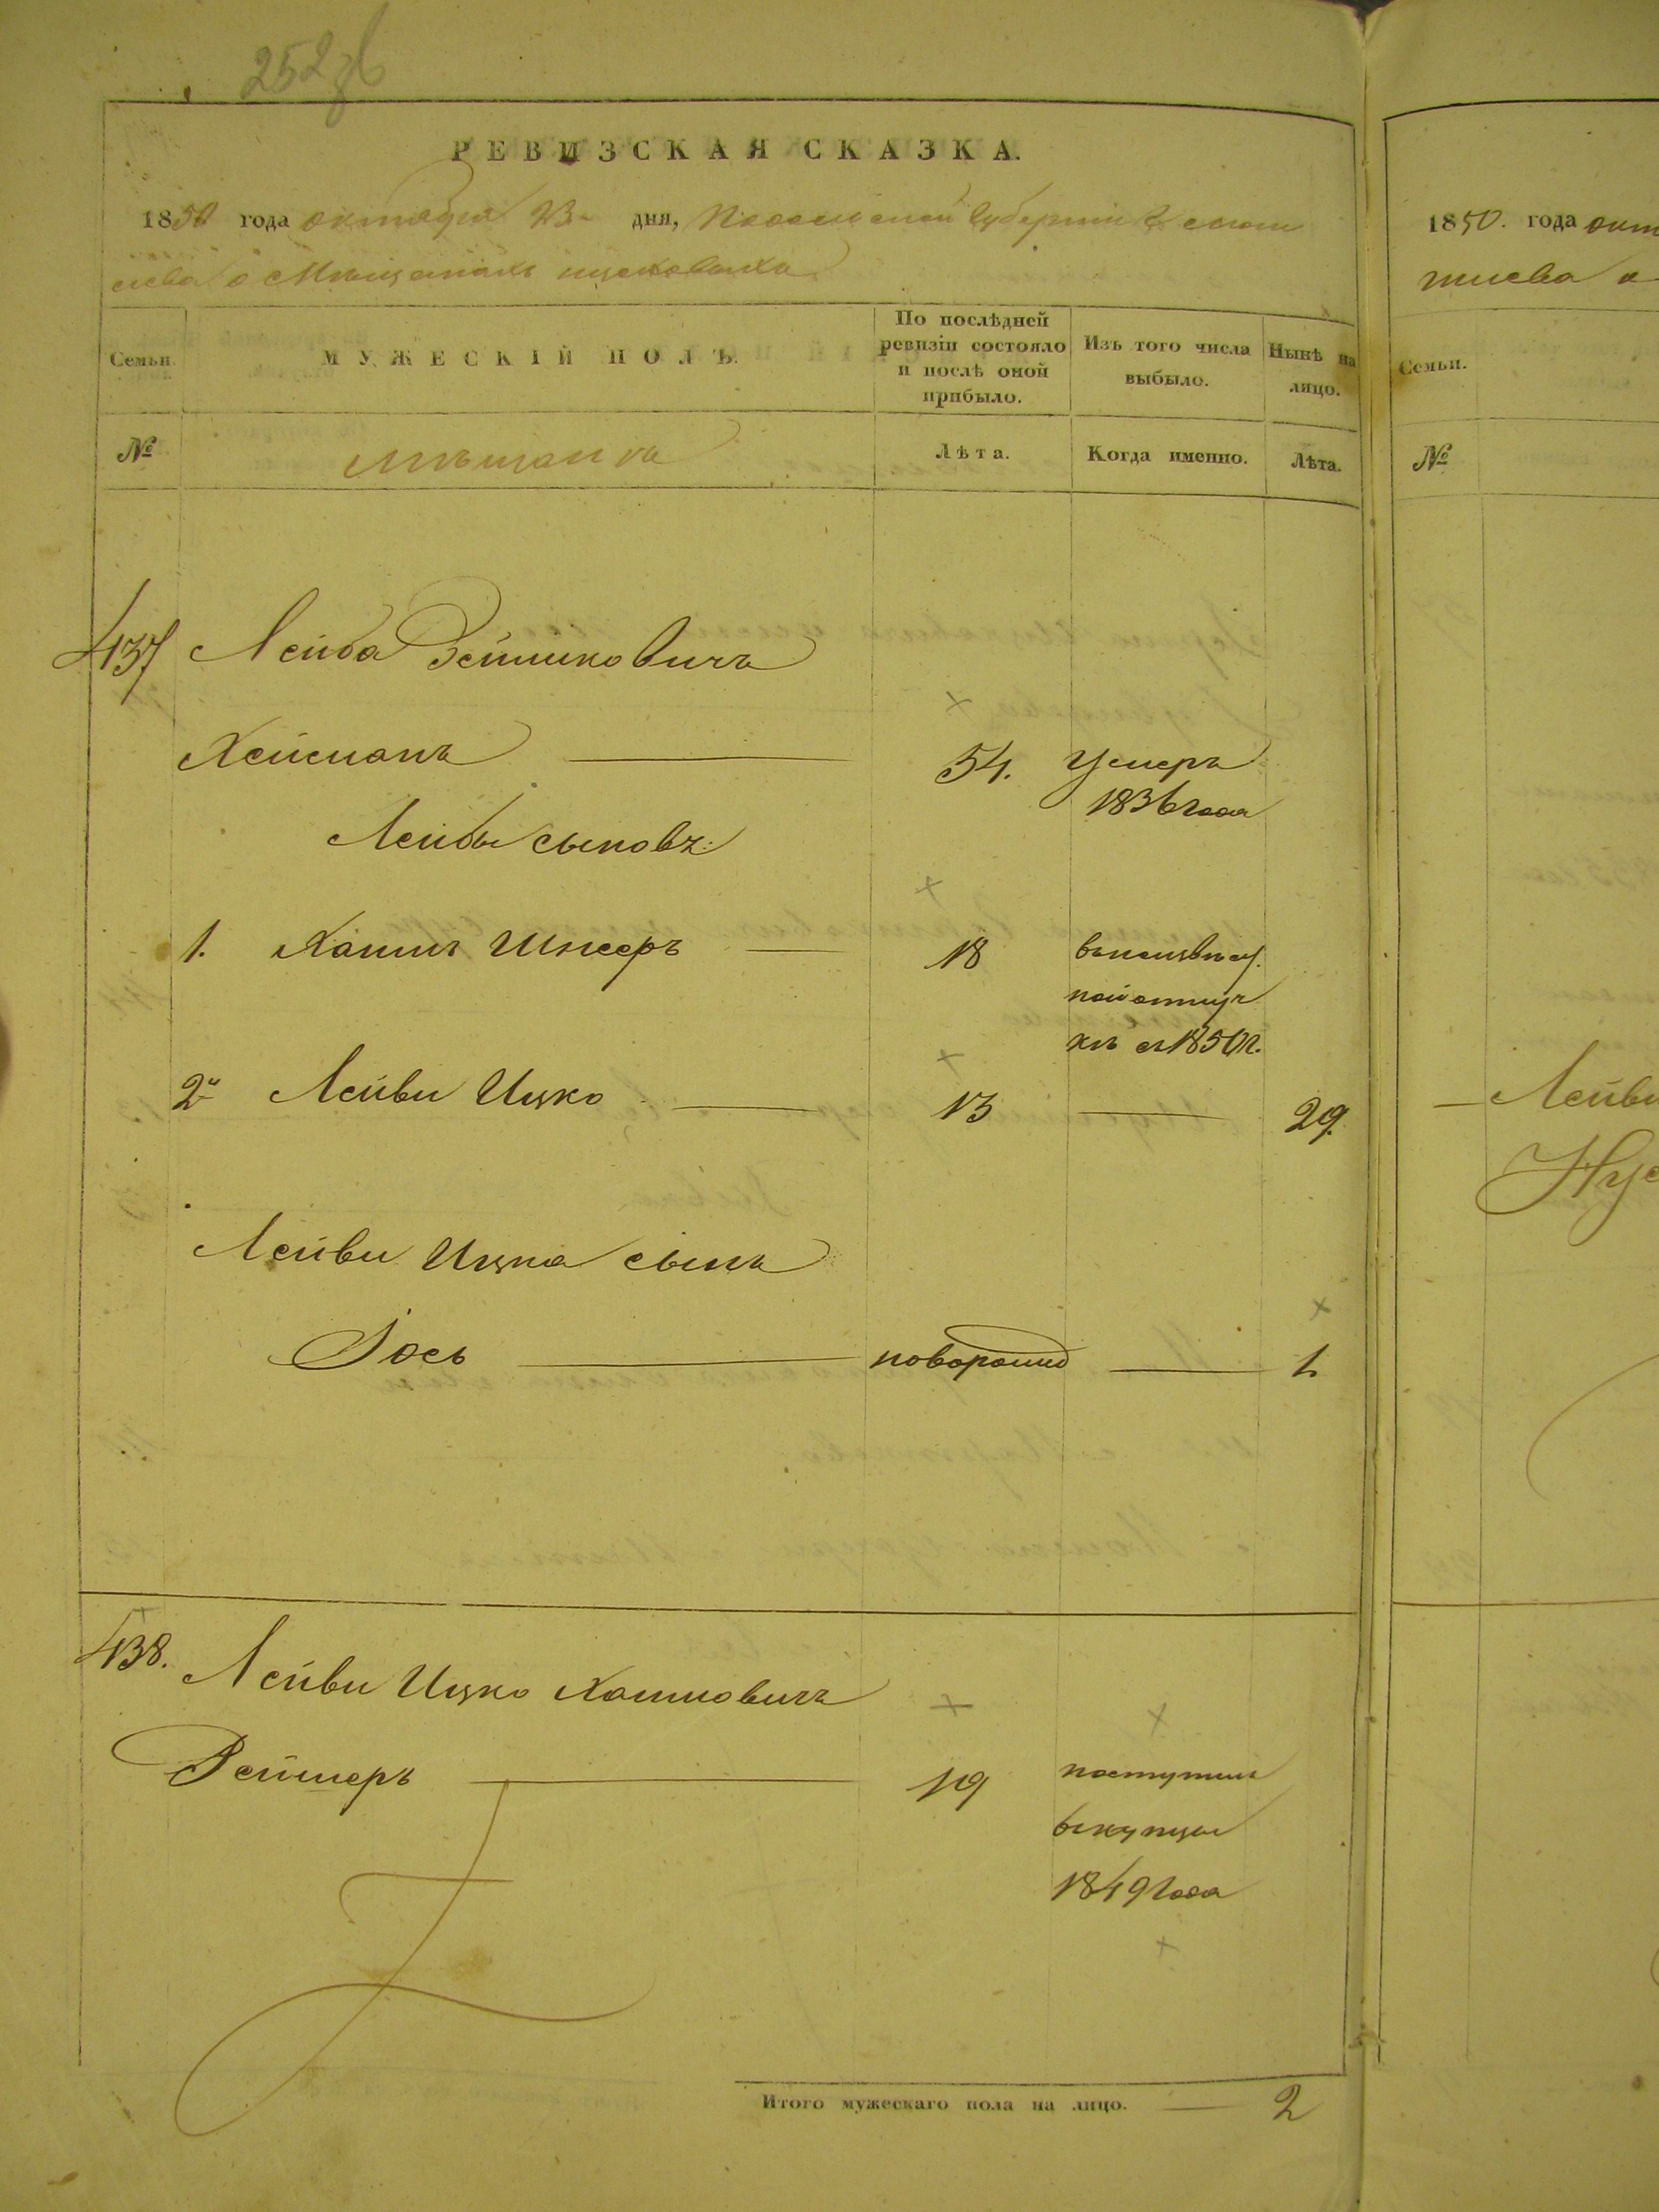 252 зв
РЕВИЗСКАЯ СКАЗКА.
1850 года октября 23 дня, Подольской Губернии
о Мѣщанахъ
Семьи.
МУЖЕСКІЙ ПОЛЪ.
По послѣдней ревизіи состояло и послѣ оной прибыло.
Изъ того числа выбыло.
Нынѣ на лицо.
№
Мѣщане
Лѣта.
Когда именно.
Лѣта.
437
Лейба
Хейсманъ 54. Умеръ
1836 года
Лейбы сыновъ:
1. Хаимъ Шнееръ 18
с 1850 г.
2й Лейви Ицко 13 29.
Лейви Ицка сынъ
Іось новорожд 1
438. Лейви Ицко Хаимовичъ
19 поступилъ
в купцы
1849 года
Итого мужескаго пола на лицо. 2
1850. года окт
Семьи.
№
Лейви